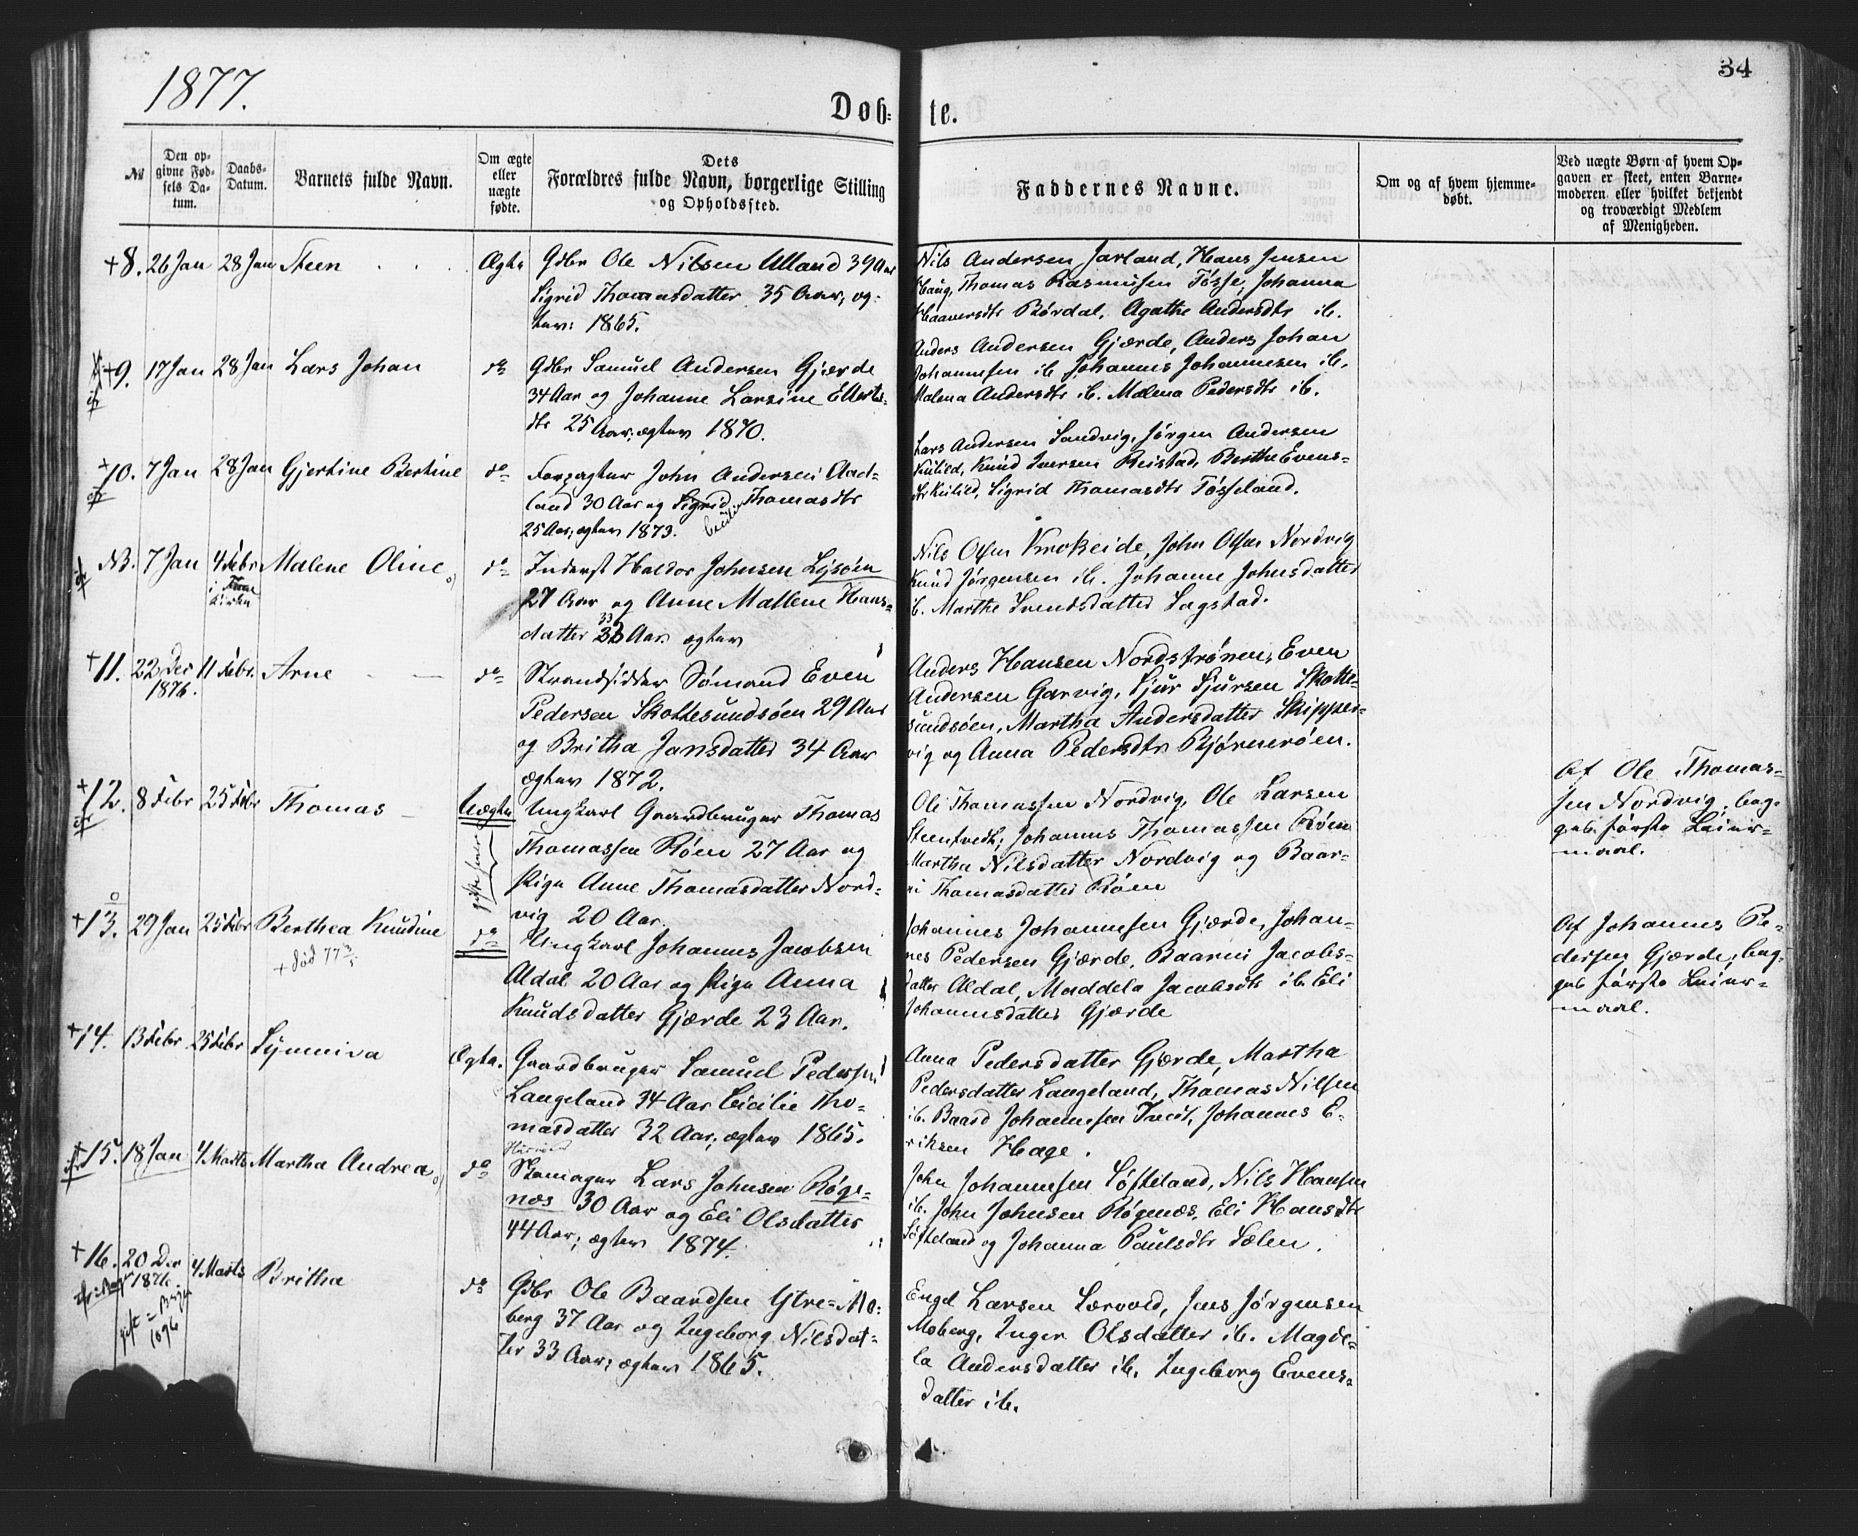 1877.
34
Døb-
te.
№
Den op-
givne Fød-
sels Da-
tum.
Daabs-
Datum.
Barnets fulde Navn.
Om ægte
eller
uægte
fødte.
Dets
Forældres fulde Navn, borgerlige Stilling
og Opholdssted.
Faddernes Navne.
Om og af hvem hjemme-
døbt.
Ved uægte Børn af hvem Op-
gaven er skeet, enten Barne-
moderen eller hvilket bekjendt
og troværdigt Medlem
af Menigheden.
+8. 26 Jan 28 Jan Steen Ægte
Gdbr Ole Nilsen Ulland 39 Aar
Sigrid Thomasdatter 35 Aar, æg-
tev: 1865.
Nils Andersen Jarland, Hans Jensen
Haug, Thomas Rasmusen Tøsse, Johanna
Haaversdtr Børdal, Agathe Andersdtr ib.
+9. 17 Jan 28 Jan Lars Johan do
Gdbr Samuel Andersen Gjærde
34 Aar og Johanne Larsine Ellerts-
dtr 25 Aar; ægtev 1870.
Anders Andersen Gjærde, Anders Johan
Johannesen ib Johannes Johannesen ib.
Malena Andersdtr ib. Malena Pedersdtr ib.
+10. 7 Jan 28 Jan Gjertine Bertine do
Forpagter John Andersen Aad-
land 30 Aar og Sigrid Thomasdtr
Cecilie
25 Aar; ægtev 1873.
Lars Andersen Sandvig, Jørgen Andersen
Kulild, Knud Iversen Reistad, Berthe Evens-
dtr Kulild, Sigrid Thomasdtr Tøsseland.
NB. 7 Jan 4 Febr Malene Oline do
i Fane
Kirken
Inderst Haldor Johnsen Lysøen
27 Aar og Anne Mallene Hans-
datter 33 Aar. ægtev
Nils Olsen Krokeide, John Olsen Nordvig
Knud Jørgensen ib. Johanne Johnsdatter
ib. Marthe Svendsdatter Søgstad.
+11. 22 Dec 11 Febr. Arne do
1876.
Strandsidder Sømand Even
Pedersen Skottesundsøen 29 Aar
og Britha Jansdatter 34 Aar
ægtev 1872.
Anders Hansen Nordstrønen, Even
Andersen Garvig, Sjur Sjursen Skotte-
sundsøen, Martha Andersdatter Skipper-
vig og Anna Pedersdtr Bjørnerøen.
+12. 8 Febr 25 Febr Thomas Uægte
Ungkarl Gaardbruger Thomas
Thomassen Røen 27 Aar og
Pige Anne Thomasdatter Nord-
vig 20 Aar.
Ole Thomassen Nordvig, Ole Larsen
Stentvedt, Johannes Thomassen Røen
Martha Nilsdatter Nordvig og Baar-
ni Thomasdatter Røen
Af Ole Thomas-
sen Nordvig, beg-
ges første Leier-
maal.
+13. 29 Jan 25 Febr Berthea Knudine do
+ død 77 3/5
Ungkarl Johannes Jacobsen
Aldal 20 Aar og Pige Anna
Knudsdatter Gjærde 23 Aar.
Johannes Johannesen Gjærde, Johan-
nes Pedersen Gjærde, Baarni Jacobs-
datter Aldal, Maddela Jacobsdtr ib. Eli
Johannesdatter Gjærde
Af Johannes Pe-
dersen Gjærde, beg-
ges første Leier-
maal.
+14. 13 Febr 25 Febr Synneva Ægte.
Gaardbruger Samuel Pedersen
Langeland 34 Aar Cicilie Tho-
masdatter 32 Aar; ægtev 1865.
Anna Pedersdatter Gjærde, Martha
Pedersdatter Langeland, Thomas Nilsen
ib. Baard Johannesen Tveit, Johannes E-
riksen Hage.
+15. 18 Jan 4 Marts Martha Andrea do
Skomager Lars Johnsen Røge-
næs 30 Aar og Eli Olsdatter
44 Aar; ægtev 1874.
John Johannesen Søfteland, Nils Hansen
ib. John Johnsen Røgenæs, Eli Hansdtr
Søfteland og Johanna Paulsdtr Sælen.
+16. 20 Dec 4 Marts Britha do
1876
gift = Berge
1896
Gdbr Ole Baardsen Ytre-Mo-
berg 37 Aar og Ingeborg Nilsdat-
ter 33 Aar; ægtev 1865.
Engel Larsen Lærvold, Jens Jørgensen
Moberg, Inger Olsdatter ib. Magde-
la Andersdatter ib. Ingeborg Evens-
datter ib.